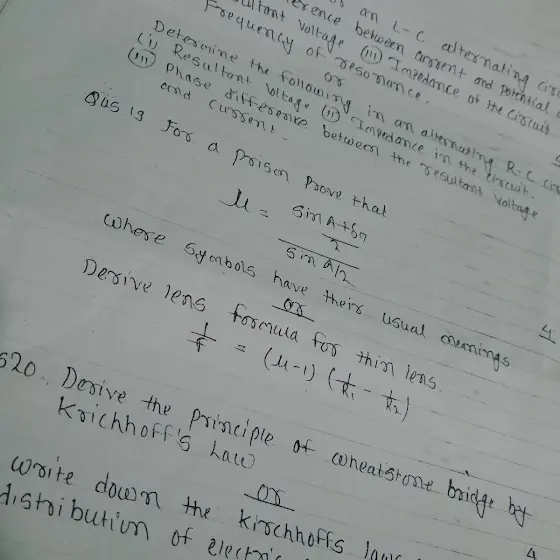 an L-C alternating circ
erence between current and potential
ultant voltage (iii) Impedance of the circuit
Frequency of resonance.
or
Determine the following in an alternating R-C circ
(i) Resultant voltage (ii) Impedance in the circuit.
(iii) Phase difference between the resultant voltage
and current.
Qus 19 For a prism prove that
μ = sin A+δm/2 / sin A/2
where symbols have their usual meanings
or
4
Derive lens formula for thin lens.
1/f = (μ-1) (1/R1 - 1/R2)
S20. Derive the principle of wheatstone bridge by
Krichhoff's Law
or
4
write down the Kirchhoffs laws
distribution of electric